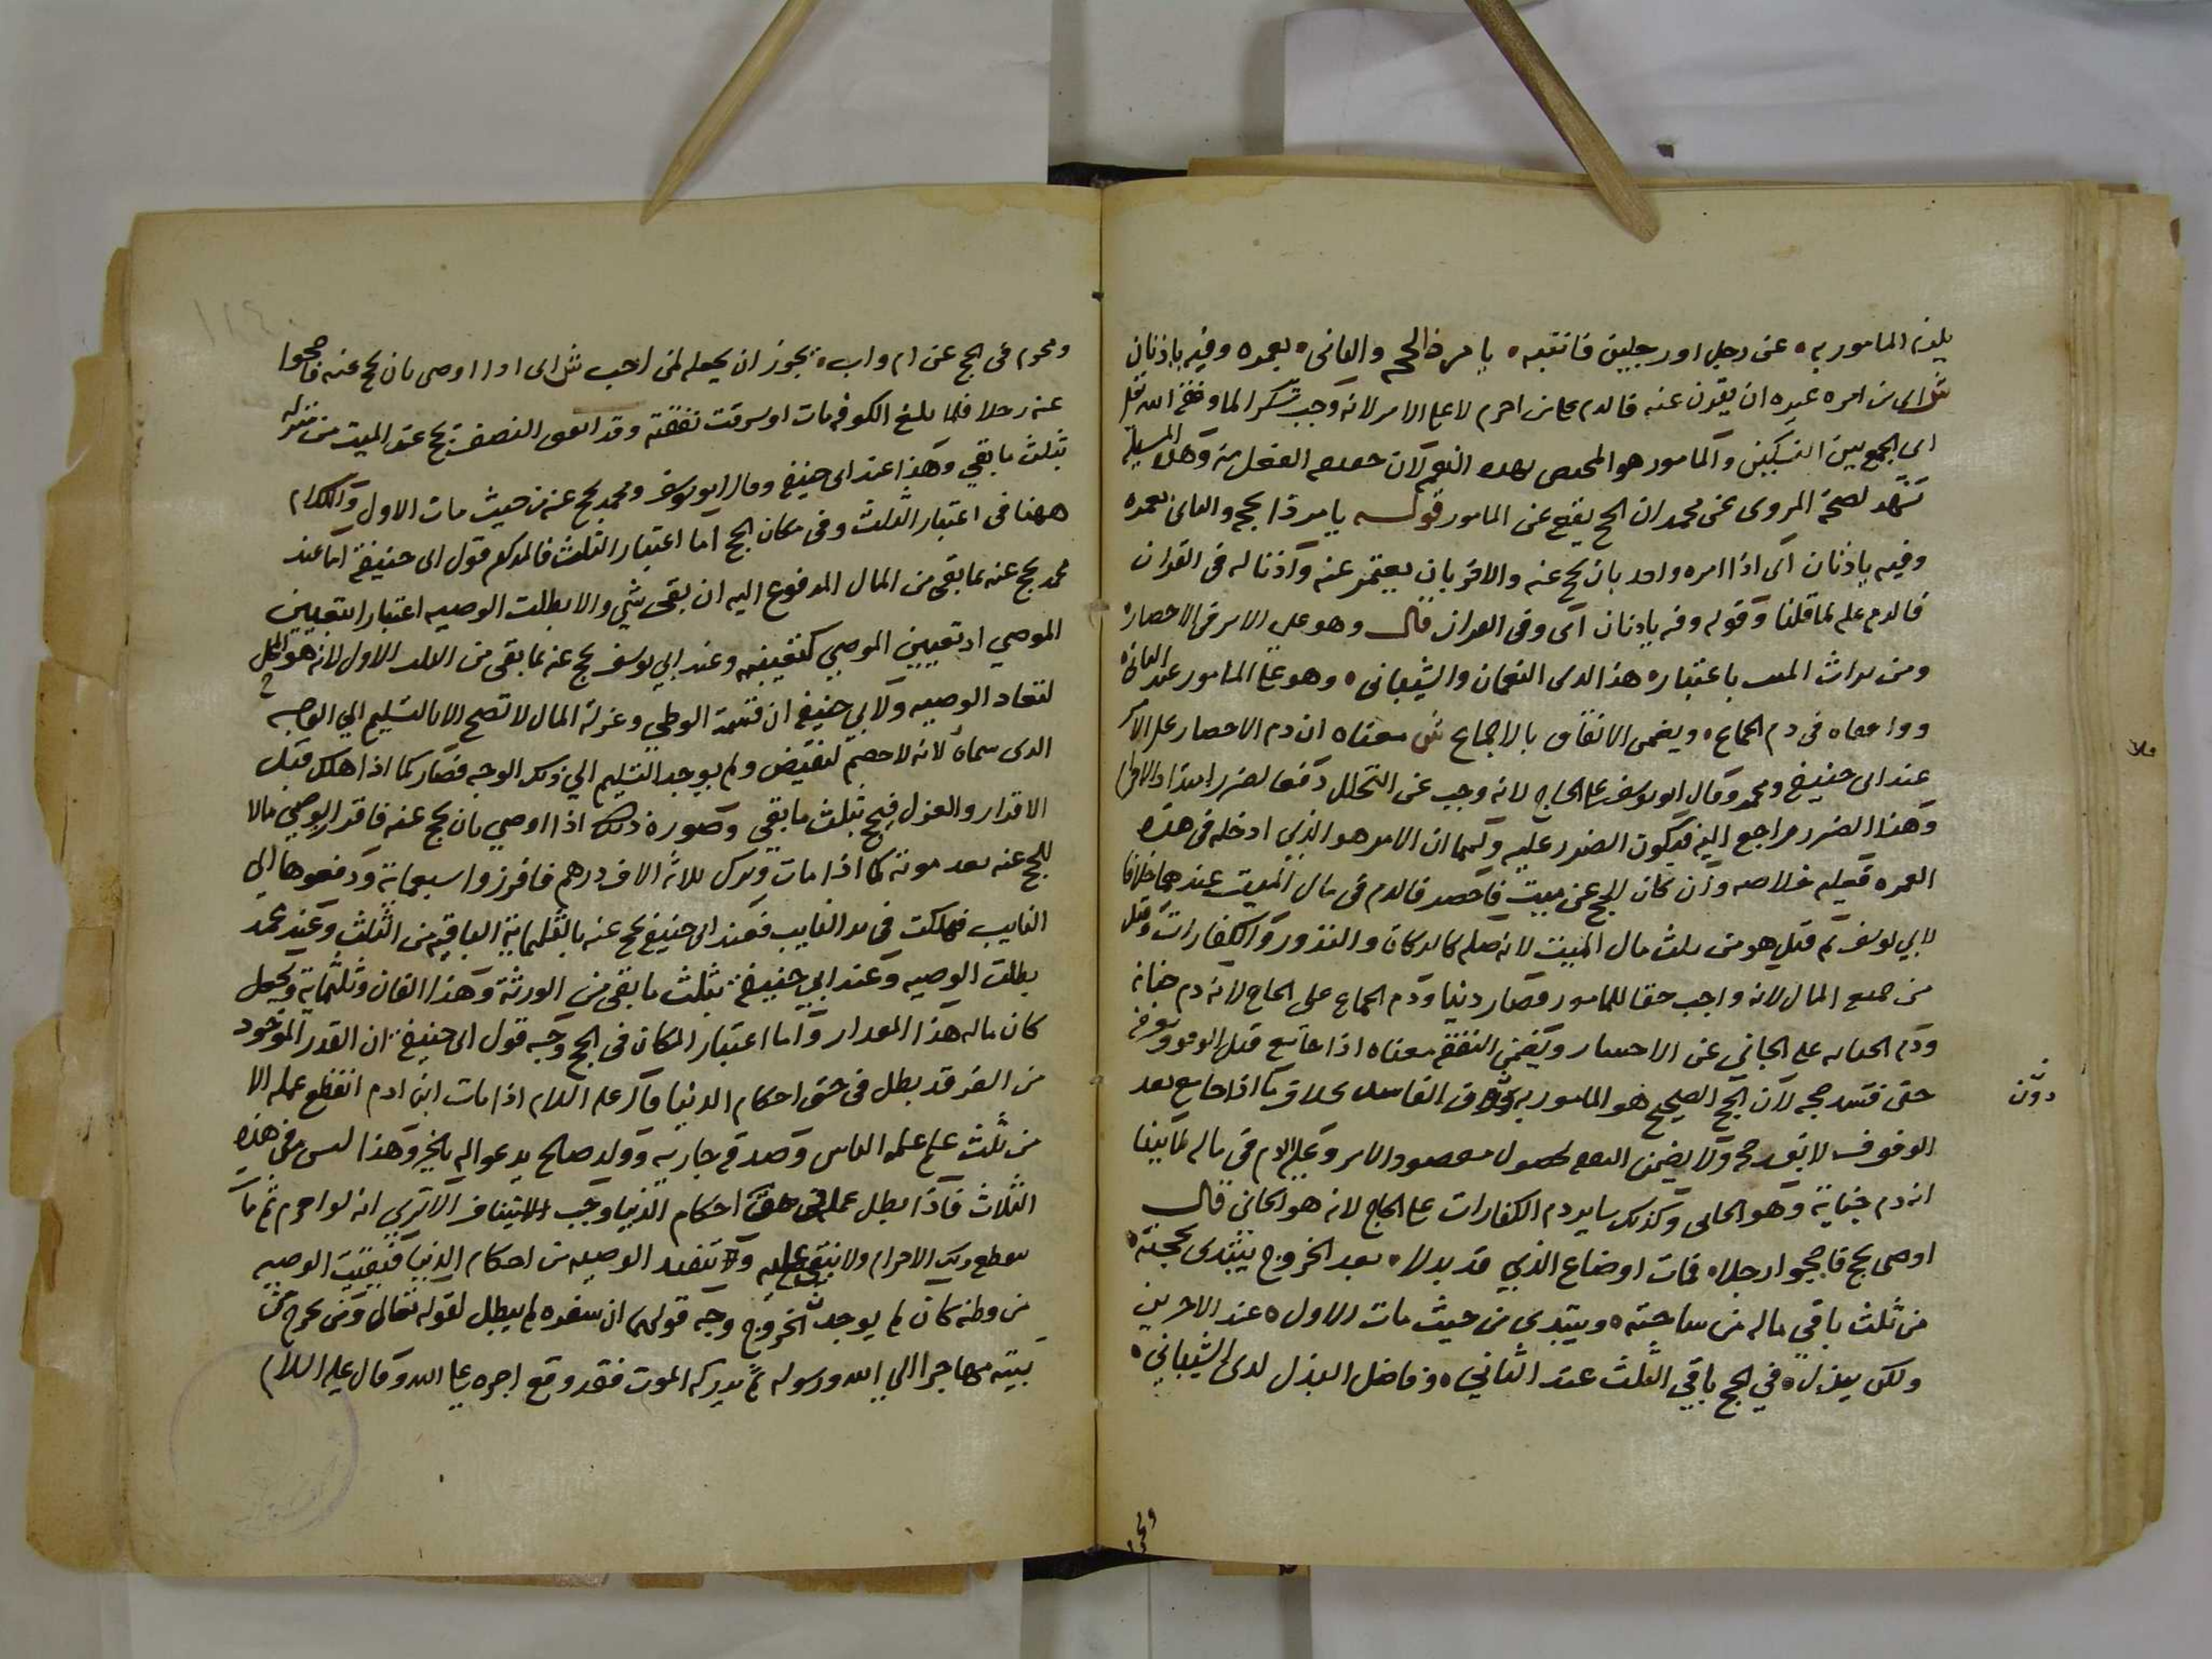 يلزم المامور به عن رجل او رجلين فانتبه يامر ذا بالحج والثاني بعمره وفيه ياذنان
ش اي من امره غيره ان يقرن عنه فالدم على من احرم لا على الامر لانه وجب شكرا لما وفقه الله تعالى
الى الجمع بين النسكين والمامور هو المختص بهذه النعم لان حقيقة الفعل منه وهذه المسيله
تشهد لصحة المروي عن محمد ان الحج يقع عن المامور قوله يامر ذا بحجه والثاني بعمره
وفيه ياذنان اي اذا امره واحد بان يحج عنه والاخر بان يعتمر عنه واذنا له في القران
فالدم عليه لما قلنا وقوله وفيه ياذنان اي وفي القران قال وهو على الامر في الاحصار
ومن تراث الميت باعتباره هذا لدى النعمان والشيباني وهو على المامور عند الثاني
ووافقاه في دم الجماع ويضمن الانفاق بالاجماع ش معناه ان دم الاحصار على الامر
عند ابي حنيفه ومحمد وقال ابو يوسف على الحاج لانه وجب عن التحلل دفعا لضرر امتداد الاحرام
وهذا الضرر راجع اليه فيكون الضرر عليه ولهما ان الامر هو الذي ادخله في هذه
العهده فعليه خلاصه وان كان الحج عن ميت فاحصر فالدم في مال الميت عندهما خلافا
لابي يوسف ثم قيل هو من ثلث مال الميت لانه صله كالزكاه والنذور والكفارات وقيل
من جميع المال لانه واجب حقا للمامور فصار دينا ودم الجماع على الحاج لانه دم جنايه
ودم الجنايه على الجاني عن الاختيار ويضمن النفقه معناه اذا جامع قبل الوقوف
حتى فسد حجه لان الحج الصحيح هو المامور به دون الفاسد بخلاف ما اذا جامع بعد
الوقوف لا يفسد حجه ولا يضمن النفقه لحصول مقصود الامر وعليه الدم في ماله لما بينا
انه دم جناية وهو الجاني وكذلك ساير دم الكفارات على الحاج لانه هو الجاني قال
اوصى بحج فاحجوا رجلا فمات او ضاع الذي قد بدلا بعد الخروج يبتدى بحجته
من ثلث باقي ماله من ساحته ويبتدي من حيث مات الاول عند الاخرين
ولكن يبذل في الحج باقي الثلث عند الثاني وفاضل البذل لدى الشيباني
دون
ومحرم في الحج عن ام واب يجوز ان يجعله لمن احب ش اي اذا اوصى بان يحج عنه فاحجوا
عنه رجلا فلما بلغ الكوفه مات او سرقت نفقته وقد انفق النصف يحج عن الميت من منزله
بثلث ما بقي وهذا عند ابي حنيفه وقال ابو يوسف ومحمد يحج عنه من حيث مات الاول والكلام
ههنا في اعتبار الثلث وفي مكان الحج اما اعتبار الثلث فالمذكور قول ابي حنيفة اما عند
محمد يحج عنه بما بقي من المال المدفوع اليه ان بقي شي والا بطلت الوصيه اعتبارا بتعيين
الموصي اذ تعيين الموصي كتعيينه وعند ابي يوسف يحج عنه بما بقي من الثلث الاول لانه هو المحل
لنفاذ الوصيه ولابي حنيفه ان قسمة الوصي وعزله المال لا تصح الا بالتسليم الي الوجه
الذي سماه لانه لا خصم ليقبض ولم يوجد التسليم الي ذلك الوجه فصار كما اذا هلك قبل
الاقرار والعزل فيحج بثلث ما بقي وصورة ذلك اذا اوصي بان يحج عنه فافرز الوصي مالا
للحج عنه بعد موته كما اذا مات وترك ثلاثة الاف درهم فافرزوا سبعماية ودفعوها الي
النايب فهلكت في يد النايب فعند ابي حنيفه يحج عنه بالثلثماية الباقيه من الثلث وعند محمد
بطلت الوصيه وعند ابي حنيفة بثلث ما بقي من الورثة وهذا الفان وثلثماية ويجعل
كان ماله هذا المقدار واما اعتبار المكان في الحج وجه قول ابي حنيفة ان القدر الموجود
من السفر قد بطل في حق احكام الدنيا قال عليه السلام اذا مات ابن ادم انقطع عمله الا
من ثلث علم علمه الناس وصدقه جاريه وولد صالح يدعو اله بالخير وهذا ليس من هذه
الثلاث فاذا بطل عمله في حق احكام الدنيا وجب الاستيناف الا تري انه لو احرم ثم مات
انقطع ذلك الاحرام ولا يبني عليه وتنفيذ الوصيه من احكام الدنيا فبقيت الوصيه
من وطنه كان لم يوجد الخروج وجه قولهما ان سفره لم يبطل لقوله تعالى ومن يخرج من
بيته مهاجرا الي الله ورسوله ثم يدركه الموت فقد وقع اجره على الله وقال عليه السلام